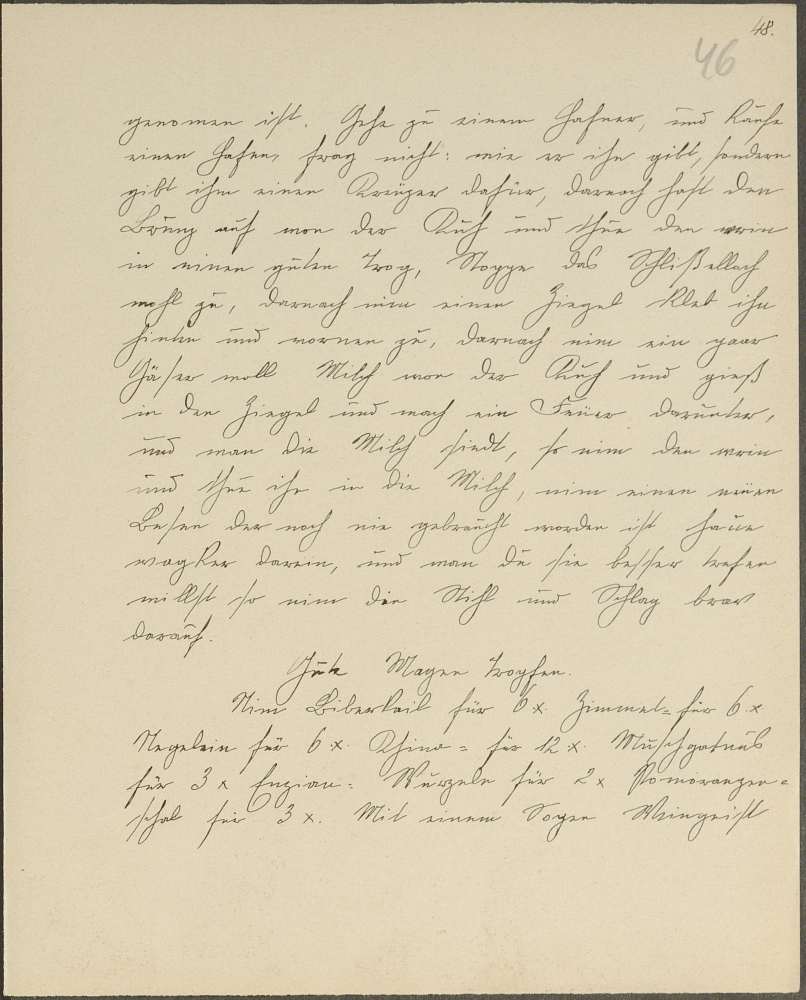 48.
46
genomen ist. Gehe zu einem Hafner, und Kaufe
einen Hafen, frag nicht: wie er ihn gibt, sondern
gibt ihm einen Kreuzer dafür, darnach hast den
Brunz auf von der Kuh und thue den urin
in einen guten Trog, Stoppe das Schlißelloch
wohl zu, darnach nim einen Ziegel Kleb ihn
hinten und vornen zu, darnach nim ein paar
Gäser voll Milch von der Kuh und gieß
in den Ziegel und mach ein Feuer darunter,
und wan die Milch siedt, so nim den urin
und thue ihn in die Milch, nim einen neuen
Besen der noch nie gebraucht worden ist haue
wagker darein, und wan du sie besser trefen
willst so nim den Stihl und Schlag brav
darauf.
Gute Magen Tropfen.
Nim Biberkeil für 6 x. Zimmet= für 6. x
Negelein für 6 x. Khina = für 12 x. Muschgatnus
für 3 x Enzian= Wurzeln für 2 x Pomoranzen=
schal für 3 x. Mit einem Weingeist